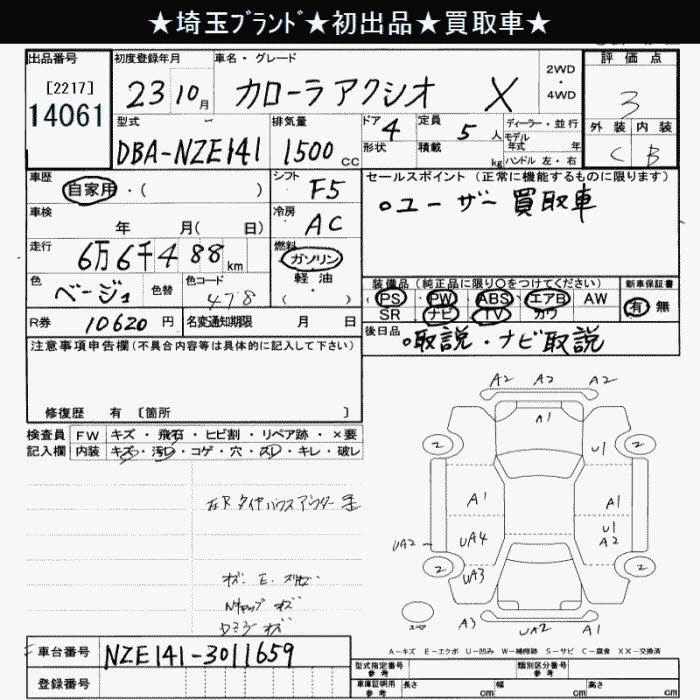 ★埼玉ﾌﾞﾗﾝﾄﾞ★初出品★買取車★
出品番号 初度登録年月 車名・グレード 2WD・4WD 評価点
[2217]
14061
23 10月 カローラアクシオ X 3
型式 排気量 ドア 4 定員 5 人 ディーラー・並行 外装 内装
DBA-NZE141 1500cc 形状 積載 kg モデル年式 年 C B
ハンドル 左・右
車歴 シフト F5 セールスポイント（正常に機能するものに限ります）
自家用・( ) ○ユーザー買取車
車検 冷房 AC
年 月( 日)
走行 6万6千488km 燃料 ガソリン・軽油 ( )
色 ベージュ 色替 色コード 478
装備品（純正品に限り○をつけてください） 新車保証書
PS・PW・ABS・エアB・AW 有・無
SR ナビ TV カワ
R券 10620円 名変通知期限 月 日
後日品 ○取説・ナビ取説
注意事項申告欄(不具合内容等は具体的に記入して下さい)
修復歴 有〔箇所 〕
検査員 FW キズ・飛石・ヒビ割・リペア跡・×要
記入欄 内装 キズ・汚レ・コゲ・穴・スレ・キレ・破レ
A2 A2 A2
A1
2 2
U1
A1 A1
UA2 UA4 U1 A2
2 UA3 2
A3 UA2 A1
スペア
A－キズ E－エクボ U－凹み W－補修跡 S－サビ C－腐食 XX－交換済
車台番号 NZE141-3011659
登録番号
型式指定番号 参考 類別区分番号 参考
車庫証明用 参考 長さ cm 幅 cm 高さ cm